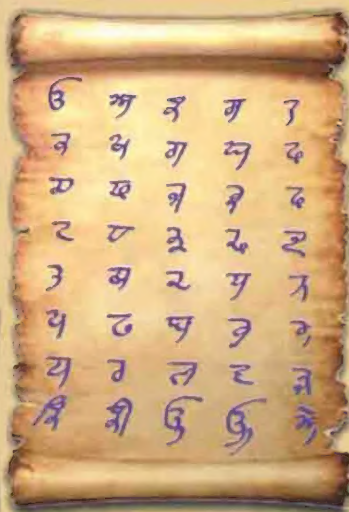 ੳ ਅ ੲ ਸ ਹ
ਕ ਖ ਗ ਘ ਙ
ਚ ਛ ਜ ਝ ਞ
ਟ ਠ ਡ ਢ ਣ
ਤ ਥ ਦ ਧ ਨ
ਪ ਫ ਬ ਭ ਮ
ਯ ਰ ਲ ਵ ੜ
ਉ ਊ